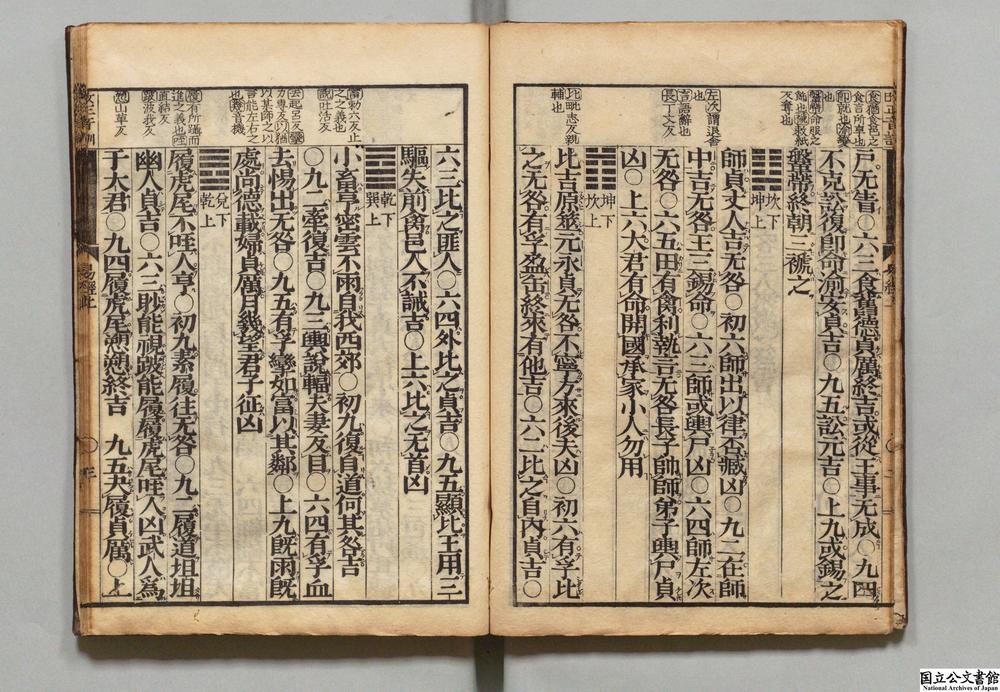 戸无眚○六三食舊德貞厲終吉或從王事无成○九四
不克訟復即命渝安貞吉○九五訟元吉○上九或錫之
鞶帶終朝三褫之
坎下
坤上
師貞丈人吉无咎○初六師出以律否臧凶○九二在師
左次謂退舎
也
言語辭也
長丁丈反
中吉无咎王三錫命○六三師或輿尸凶○六四師左次
无咎○六五田有禽利執言无咎長子帥師弟子輿尸貞
凶○上六大君有命開國承家小人勿用
坤下
坎上
比毗志反親
輔也
比吉原筮元永貞无咎不寧方來後夫凶○初六有孚比
之无咎有孚盈缶終來有他吉○六二比之自内貞吉○
六三比之匪人○六四外比之貞吉○九五顯比王用三
驅失前禽邑人不誡吉○上六比之无首凶
乾下
巽上
小畜亨密雲不雨自我西郊○初九復自道何其咎吉
○九二牽復吉○九三輿說輻夫妻反目○六四有孚血
去惕出无咎○九五有孚攣如富以其鄰○上九既雨既
處尚德載婦貞厲月幾望君子征凶
兌下
乾上
跛波我反
愬山革反
履虎尾不咥人亨○初九素履往无咎○九二履道坦坦
幽人貞吉○六三眇能視跛能履履虎尾咥人凶武人為
于大君○九四履虎尾愬愬終吉 九五夬履貞厲○上
国立公文書館
National Archives of Japan